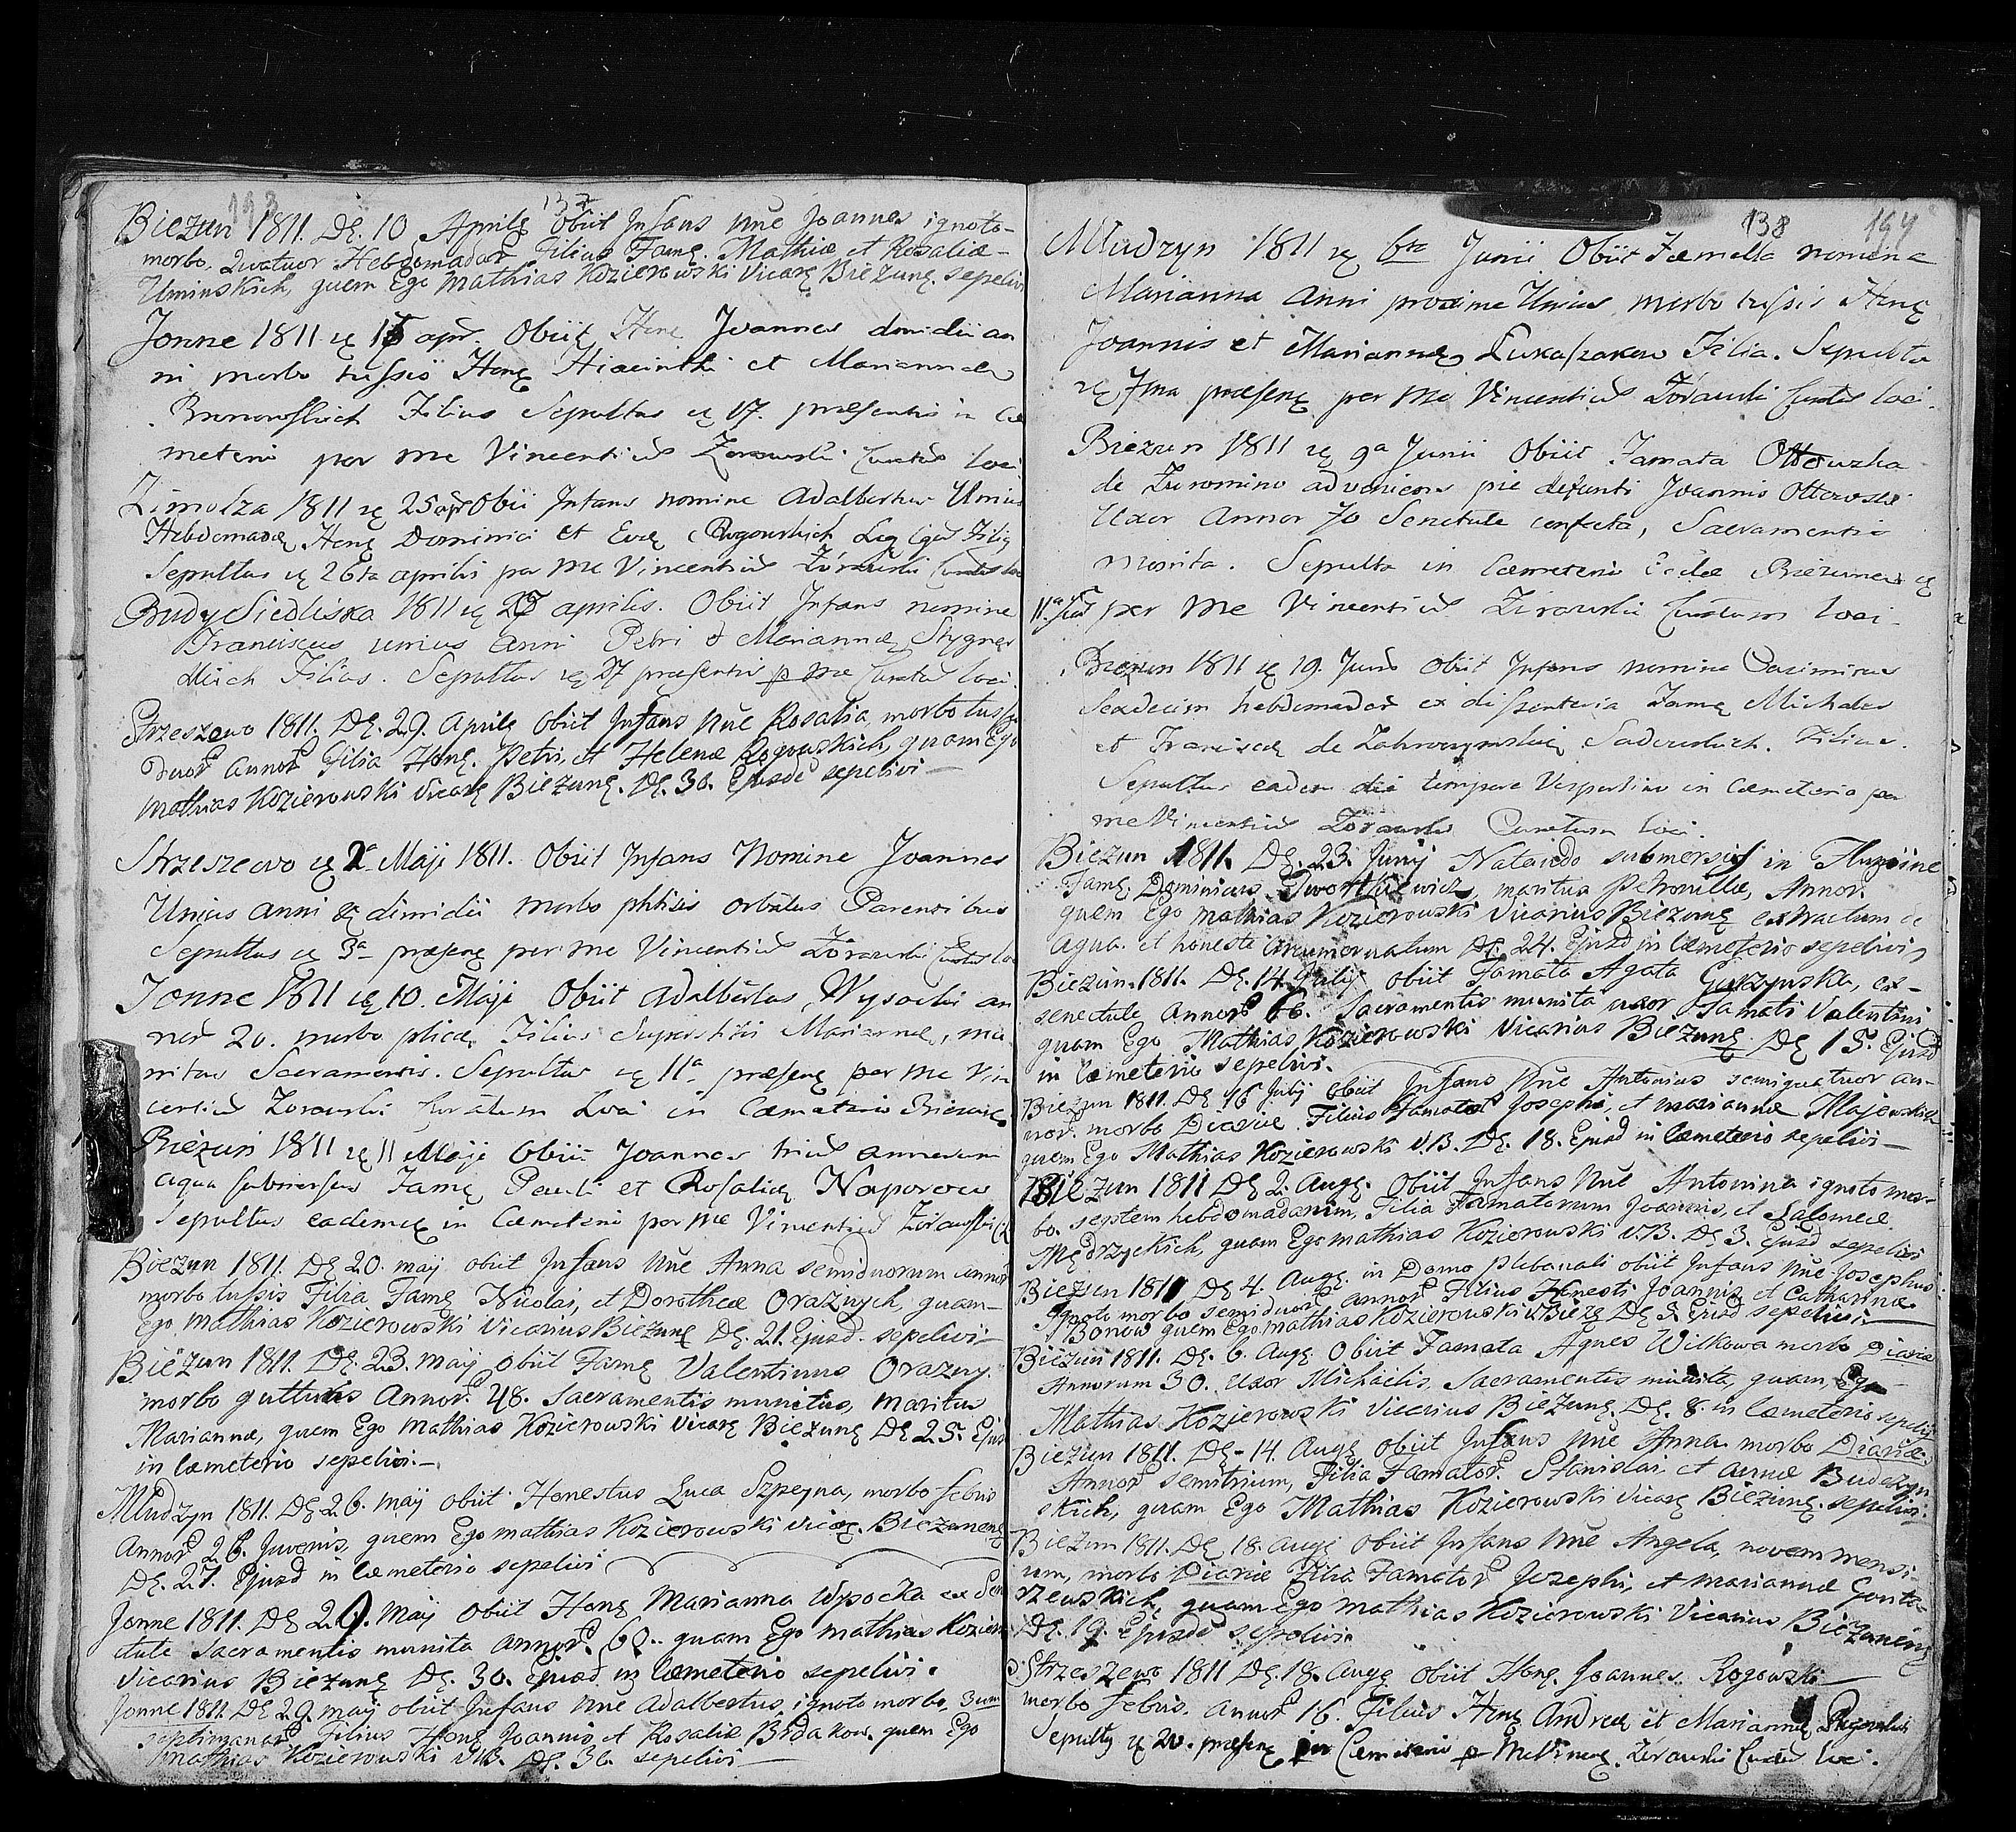 193
137
Biezun 1811. Dę. 10 Aprilę obiit Infans nñe Joannes ignoto-
morbo, Quatuor Hebdomador. Filius Famę. Mathiæ et Rosaliæ-
Uminskich, quem Ego Mathias Kozierowski Vicarę Biezunę. sepelivi
Jonne 1811 ę apr. Obiit Honę Joannes dimidii an
ni morbo tussis Honę Hiacinthi et Mariannæ
Filius Sepultus ę 17. præsentis in Cæ
meterio per me Vincentiũ Zorawski Curatũ loci
Zimolza 1811 ę 25 apr Obii Infans nomine Adalbertus Unius
Hebdomadę Honę Dominici et Evę Rogowskich Leg Filiq
Sepultus ę 26ta aprilis per me Vincentiũ Zórawski Curatũ loci
Budy Siedliska 1811 ę aprilis. Obiit Infans nomine
Franciscus unius Anni Petri & Mariannæ
Filius. Sepultus ę 27 præsentis p me Curatũ loci.
Strzeszewo 1811. Dę. 29. Aprilę obiit Infans nñe Rosalia, morbo tussis
duor Annor Filia Honę. Petri, et Helenæ Rogowskich, quam Ego
Mathias Kozierowski Vicarę Biezunę. Dę. 30. Ejusde sepelivi
Strzeszewo ę 2a Maji 1811. Obiit Infans Nomine Joannes
Unius anni & dimidii morbo phtisis orbatus Parentibus
Sepultus ę 3a præsenę per me Vincentiũ Zórawski Curatũ loci
Jonne 1811 ę 10. Maji Obiit Adalbertus Wysocki an
nor 20. morbo plicæ, Filius Superstitis Mariannæ, mu
nitus Sacramentis. Sepultus ę 11a præsenę per me Vin
centiũ Zorawski Curatum Loci in Cæmeterio Biezunę
Biezun 1811 ę 11 Maji Obiit Joannes triũ annorum
aqua submersus Famę Pauli et Rosaliæ Naporow
Sepultus eademę in Cæmeterio per me Vincentiũ Zorawski
Biezun 1811. Dę 20. maij obiit Infans nñe Anna semiduorum annor
morbo tussis Filia Famę Nicolai, et Dorotheæ Oraznych, quam-
Ego Mathias Kozierowski Vicarius Biezunę Dę. 21. Ejusd. sepelivi-
Biezun 1811. Dę. 23. maij obiit Famę Valentinus Orazny.
morbo gutturis Annor. 48. Sacramentis munitus, maritus
Mariannæ, quem Ego Mathias Kozierowski Vicarę Biezunę Dę 25. Ejus
in Cæmeterio sepelivi.-
Mludzyn 1811. Dę 26. maij obiit Honestus Luca Szpeyna, morbo febris
Annor. 26. Juvenis, quem Ego Mathias Kozierowski Vicarę. Biezunenę
Dę. 27. Ejusd in Cæmeterio sepelivi
Jonne 1811. Dę maij obiit Honę Marianna Wysocka ex Sene
ctute Sacramentis munita Annor. 60. quam Ego Mathias Kozierow
Vicarius Biezunę Dę. 30. Ejusd in Cæmeterio sepelivi.
Jonne 1811. Dę 29. maij obiit Infans nñe Adalbertus, ignoto morbo, 3um
septimanar Filius Honę Joannis et Rosaliæ Brdakow. quem Ego
Mathias Kozierowski V.B. Dę. 30. sepelivi
138
194
Mludzyn 1811 ę 6ta Junii Obiit Fæmella nomine
Marianna Anni proxime Unius morbo tussis Honę
Joannis et Mariannę Lukaszakow Filia. Sepulta
ę 7ma præsenę per me Vincentiũ Zórawski Curatũ loci.
Biezun 1811 ę 9a Junii Obiit Famata Ottowska
de Zuromino advenicens pie defuncti Joannis Ottowski
Uxor Annor 70 Senectute confecta, Sacramentis
munita. Sepulta in Cæmeterio Biezunen ę
11a per me Vincentiũ Zórawski Curatum loci.
Biezun 1811 ę 19. Junii obiit Infans nomine Casimirus
Sexdecim hebdomadar ex dissenteria Famę Michaelis
et Franciscę de Sadowskich. Filius.
Sepultus eadem die tempore Vespertino in Cæmeterio per
me Vincentiũ Zórawski Curatum loci.
Biezun 1811. Dę. 23. Junij Natando submersus in Flumine
Famę. Dominicus Tworkiewicz, maritus Petronillæ, Annor.
quem Ego Mathias Kozierowski Vicarius Biezunę extractum de
aqua. et honeste Dę. 24. Ejusd in Cæmeterio sepelivi
Biezun. 1811. Dę. 14. Julij obiit Famata Agata ex-
senectute Annor 66. Sacramentis munita uxor Famati Valentini
quam Ego Mathias Kozierowski Vicarius Biezunę. Dę 15. Ejusd
in Cæmeterio sepelivi.
Biezun 1811. Dę 16 Julij obiit Infans nñe Antonius semiquatuor an-
nor. morbo Diariæ Filius Famator Josephi, et Mariannæ Majewskich
quem Ego Mathias Kozierowski V.B. Dę. 18. Ejusd in Cæmeterio sepelivi-
Biezun 1811 Dę 2. Augę. Obiit Infans nñe Antonina ignoto mor-
bo. septem hebdomadarum, Filia Famatorum Joannis, et Salomeæ
Mędrzyckich, quam Ego Mathias Kozierowski V.B. Dę 3. Ejusd sepelivi
Biezun 1811 Dę 4. Augę. in Domo Plebanali obiit Infans nñe Josephus
Ignoto morbo semiduor annor Filius Honesti Joannis et Catharinæ.
Bonow quem Ego Mathias Kozierowski V.Biezę Dę 5. Ejusd sepelivi.-
Biezun 1811. Dę. 6. Augę Obiit Famata Agnes Wilkowa morbo Diaria
Annorum 30. Uxor Michaelis, Sacramentis munita, quam, Ego
Mathias Kozierowski Vicarius Biezunę. Dę. 8. in Cæmeterio sepelivi
Biezun 1811. Dę - 14. Augę obiit Infans nñe Anna morbo Diariæ.
Annor semitrium, Filia Famator. Stanislai et Annæ Budzyn
skich, quam Ego Mathias Kozierowski Vicarę Biezunę. sepelivi.
Biezun 1811. Dę 18. Augę obiit Infans nñe Angela, novem mensi-
um, morbo Diariæ Filia Famator Josephi, et Mariannæ
rzewskich, quam Ego Mathias Kozierowski Vicarius Biezunenę
Dę. 19. Ejusde sepelivi.
Strzeszewo 1811 Dę. 18. Augę obiit Honę. Joannes Rogowski
morbo febris. Annor 16. Filius Honę Andreæ et Mariannę Rogowskich
Sepultq ę 20. præsenę in Cæmeterio p me Vincenę. Zórawski Curatũ loci.